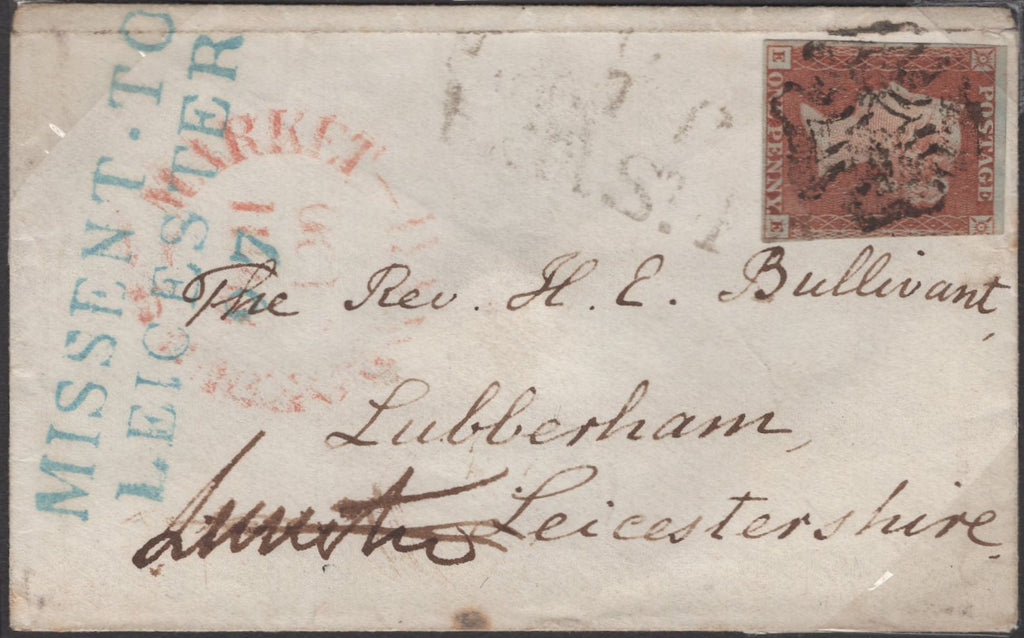 MISSENT·TO
LEICESTER
MARKET
E ONE PENNY E
POSTAGE
The Rev. H. E. Bullivant,
Lubberham,
Leicestershire.